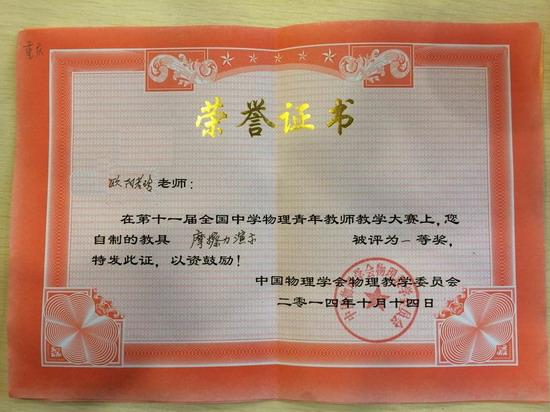 重庆
荣誉证书
老师：
在第十一届全国中学物理青年教师教学大赛上，您
自制的教具 摩擦力演示 被评为一等奖，
特发此证，以资鼓励！
中国物理学会物理教学委员会
二零一四年十月十四日
中国物理学会物理教学委员会